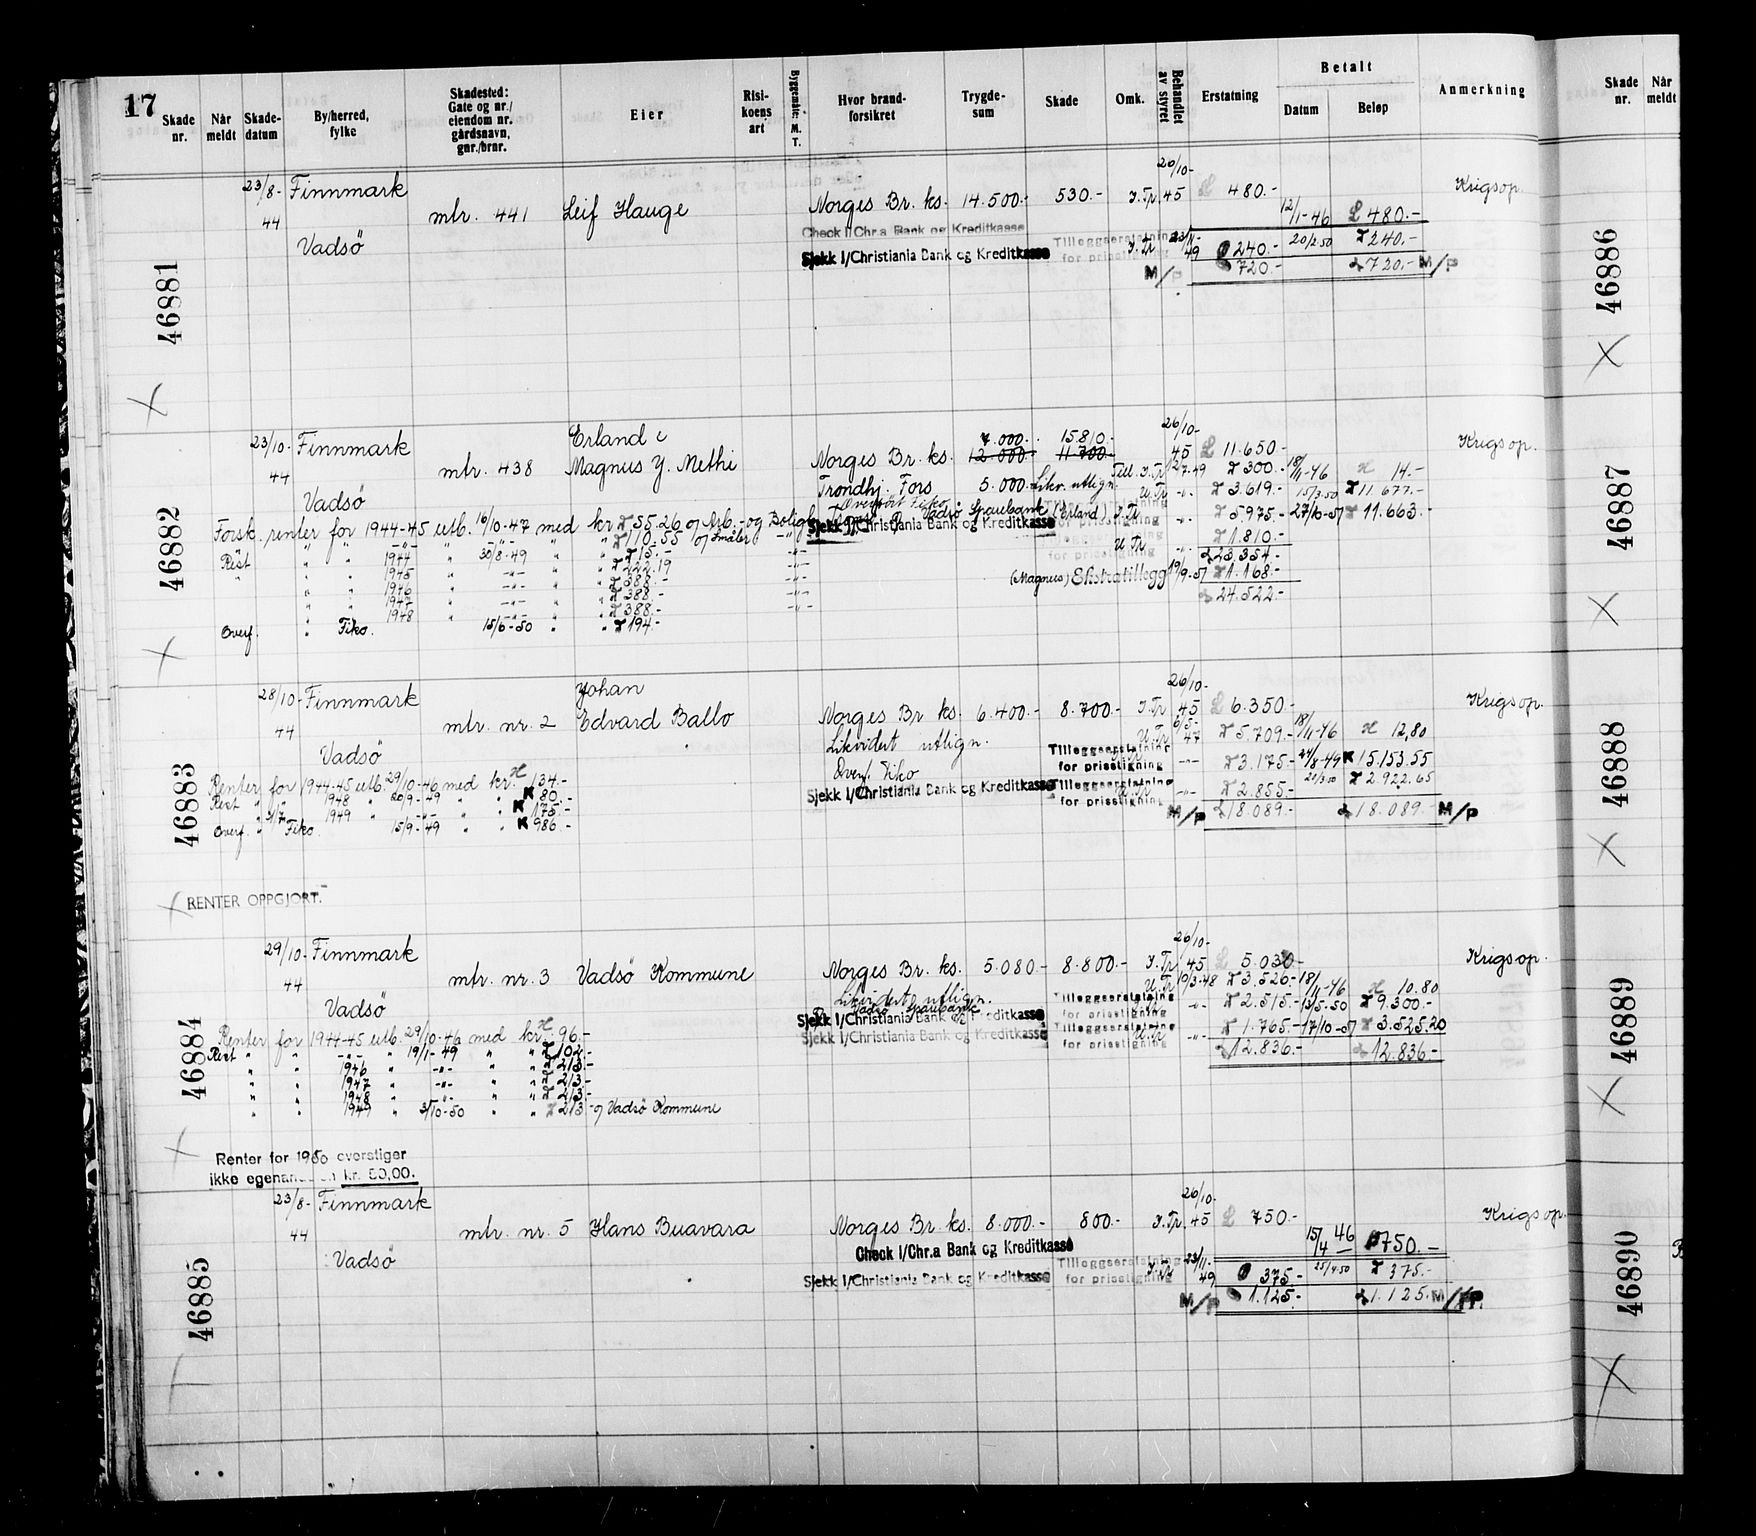 17
Skade nr.
Når meldt
Skade- datum
By/herred, fylke
Skadested: Gate og nr./ eiendom nr. gårdsnavn, gnr./brnr.
Eier
Risi- koens art
Byggemåte: M. T.
Hvor brand- forsikret
Trygde- sum
Skade
Omk.
Behandlet av styret
Erstatning
Betalt
Datum
Beløp
Anmerkning
Skade nr.
Når meldt
46881
23/8- 44
Finnmark
Vadsö
mtr. 441
Leif Hauge
Norges Br. ks. 14.500.- 530.-
26/10- 45
480.-
12/1-46 480.-
Krigsop.
Check I/Chr.a Bank og Kreditkasse
Sjekk I/Christiania Bank og Kreditkasse
Tilleggserstatning for prisstigning
23/11- 49
240.- 20/2.50 240.-
M/P 720.- 720.- M/P
46882
23/10- 44
Finnmark
Vadsö
mtr. 438
Erland &
Magnus Y. Methi
Norges Br. ks. 7.000.- 15.810.-
12.000.- 11.700.-
Trondhj. Fors. 5.000.- Likv. utlign.
26/10- 45
11.650.-
300.- 18/11-46 14.-
3.619.- 15/3.50 11.677.-
5.975.- 27/10-51 11.663.-
1.810.-
23.354.-
(Magnus) Ekstratillegg 19/9-51 1.168.-
24.522.-
Krigsop.
Overført Fiko
Vadsö Sparebank (Erland)
Sjekk I/Christiania Bank og Kreditkasse
Forsk. renter for 1944-45 utb. 16/10-47 med kr 55.26 og Arb.- og Boligb
110.55 og Småler
Rest " " 1944 " 30/8-49 " 15.-
" " " 1945 " -"- " 222.19
" " 1946 " -"- " 388.-
" " 1947 " -"- " 388.-
" " 1948 " " " 388.-
Overf. " Fiko. 15/5-50 " 194.-
46883
28/10- 44
Finnmark
Vadsö
mtr. nr. 2
Johan
Edvard Ballo
Norges Br. ks. 6.400.- 8.700.-
26/10- 45
6.350.-
6/5- 47
5.709.- 18/11-46 12,80
3.175.- 24/8-49 K 15.153.55
2.855.- 21/3.50 2.922.65
M/P 18.089.- 18.089.- M/P
Krigsop.
Likvidert utlign.
Overf. Fiko
Sjekk I/Christiania Bank og Kreditkasse
Tilleggserstatning for prisstigning
Tilleggserstatning for prisstigning
Renter for 1944-45 utb. 29/10-46 med kr. 134.-
Rest " " 1948 " 20/9-49 " " K 80.-
" 1/7 1949 " -"- " " K 175.-
Overf. " Fiko. 15/9-49 " " K 986.-
RENTER OPPGJORT.
46884
29/10- 44
Finnmark
Vadsö
mtr. nr. 3
Vadsö Kommune
Norges Br. ks. 5.080.- 8.800.-
26/10- 45
5.030.-
19/3-48 3.520.- 18/11-46 10.80
2.515.- 13/5-50 9.300.-
1.765.- 17/10-51 3.525.20
12.836.- 12.836.-
Krigsop.
Likvidert utlign.
Vadsö Sparebank
Sjekk I/Christiania Bank og Kreditkasse
Sjekk I/Christiania Bank og Kreditkasse
Tilleggserstatning for prisstigning
Tilleggserstatning for prisstigning
Renter for 1944-45 utb. 29/10-46 med kr. 96.-
Rest " " -"- " 19/1-49 " " 102.-
" " 1946 " -"- " " 213.-
" " 1947 " -"- " " 213.-
" " 1948 " -"- " " 213.-
" " 1949 " 3/10-50 " " 213.- og Vadsö Kommune
Renter for 1950 overstiger
ikke egenandelen kr. 50,00.
46885
23/8- 44
Finnmark
Vadsö
mtr. nr. 5
Hans Buavara
Norges Br. ks. 8.000.- 800.-
26/10- 45
750.-
15/4 46 750.-
Krigsop.
Check I/Chr.a Bank og Kreditkasse
Sjekk I/Christiania Bank og Kreditkasse
Tilleggserstatning for prisstigning
23/11- 49
375.- 25/4.50 375.-
M/P 1.125.- 1.125.- M/P
46886
46887
46888
46889
46890